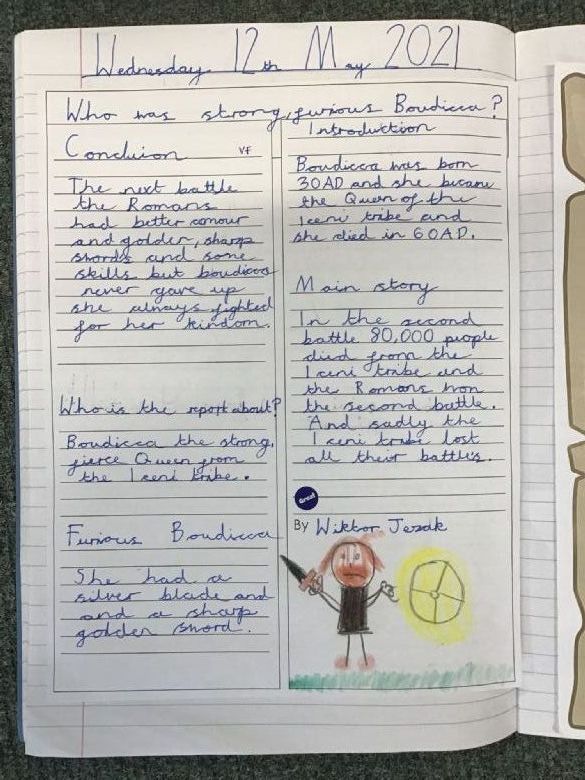 Wednesday 12th May 2021
Who was strong, furious Boudicca?
Concluion VF
The next battle
the Romans
had better armour
and golder, sharp
swords and some
skills but boudicca
never gave up
she always fighted
for her kindom.
Who is the report about?
Boudicca the strong,
fierce Queen from
the Iceni tribe.
Furious Boudicca
She had a
silver blade and
and a sharp
golden sword.
Introduction
Boudicca was born
30AD and she became
the Queen of the
Iceni tribe and
she died in 60AD.
Main story
In the second
battle 80,000 people
died from the
Iceni tribe and
the Romans won
the second battle.
And sadly the
Iceni tribe lost
all their battles.
Great
By Wiktor Jezak